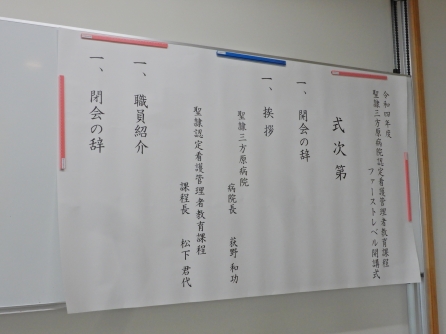 令和四年度
聖隷三方原病院認定看護管理者教育課程
ファーストレベル開講式
式次第
一、開会の辞
一、挨拶
聖隷三方原病院
病院長 荻野和功
聖隷認定看護管理者教育課程
課程長 松下君代
一、職員紹介
一、閉会の辞